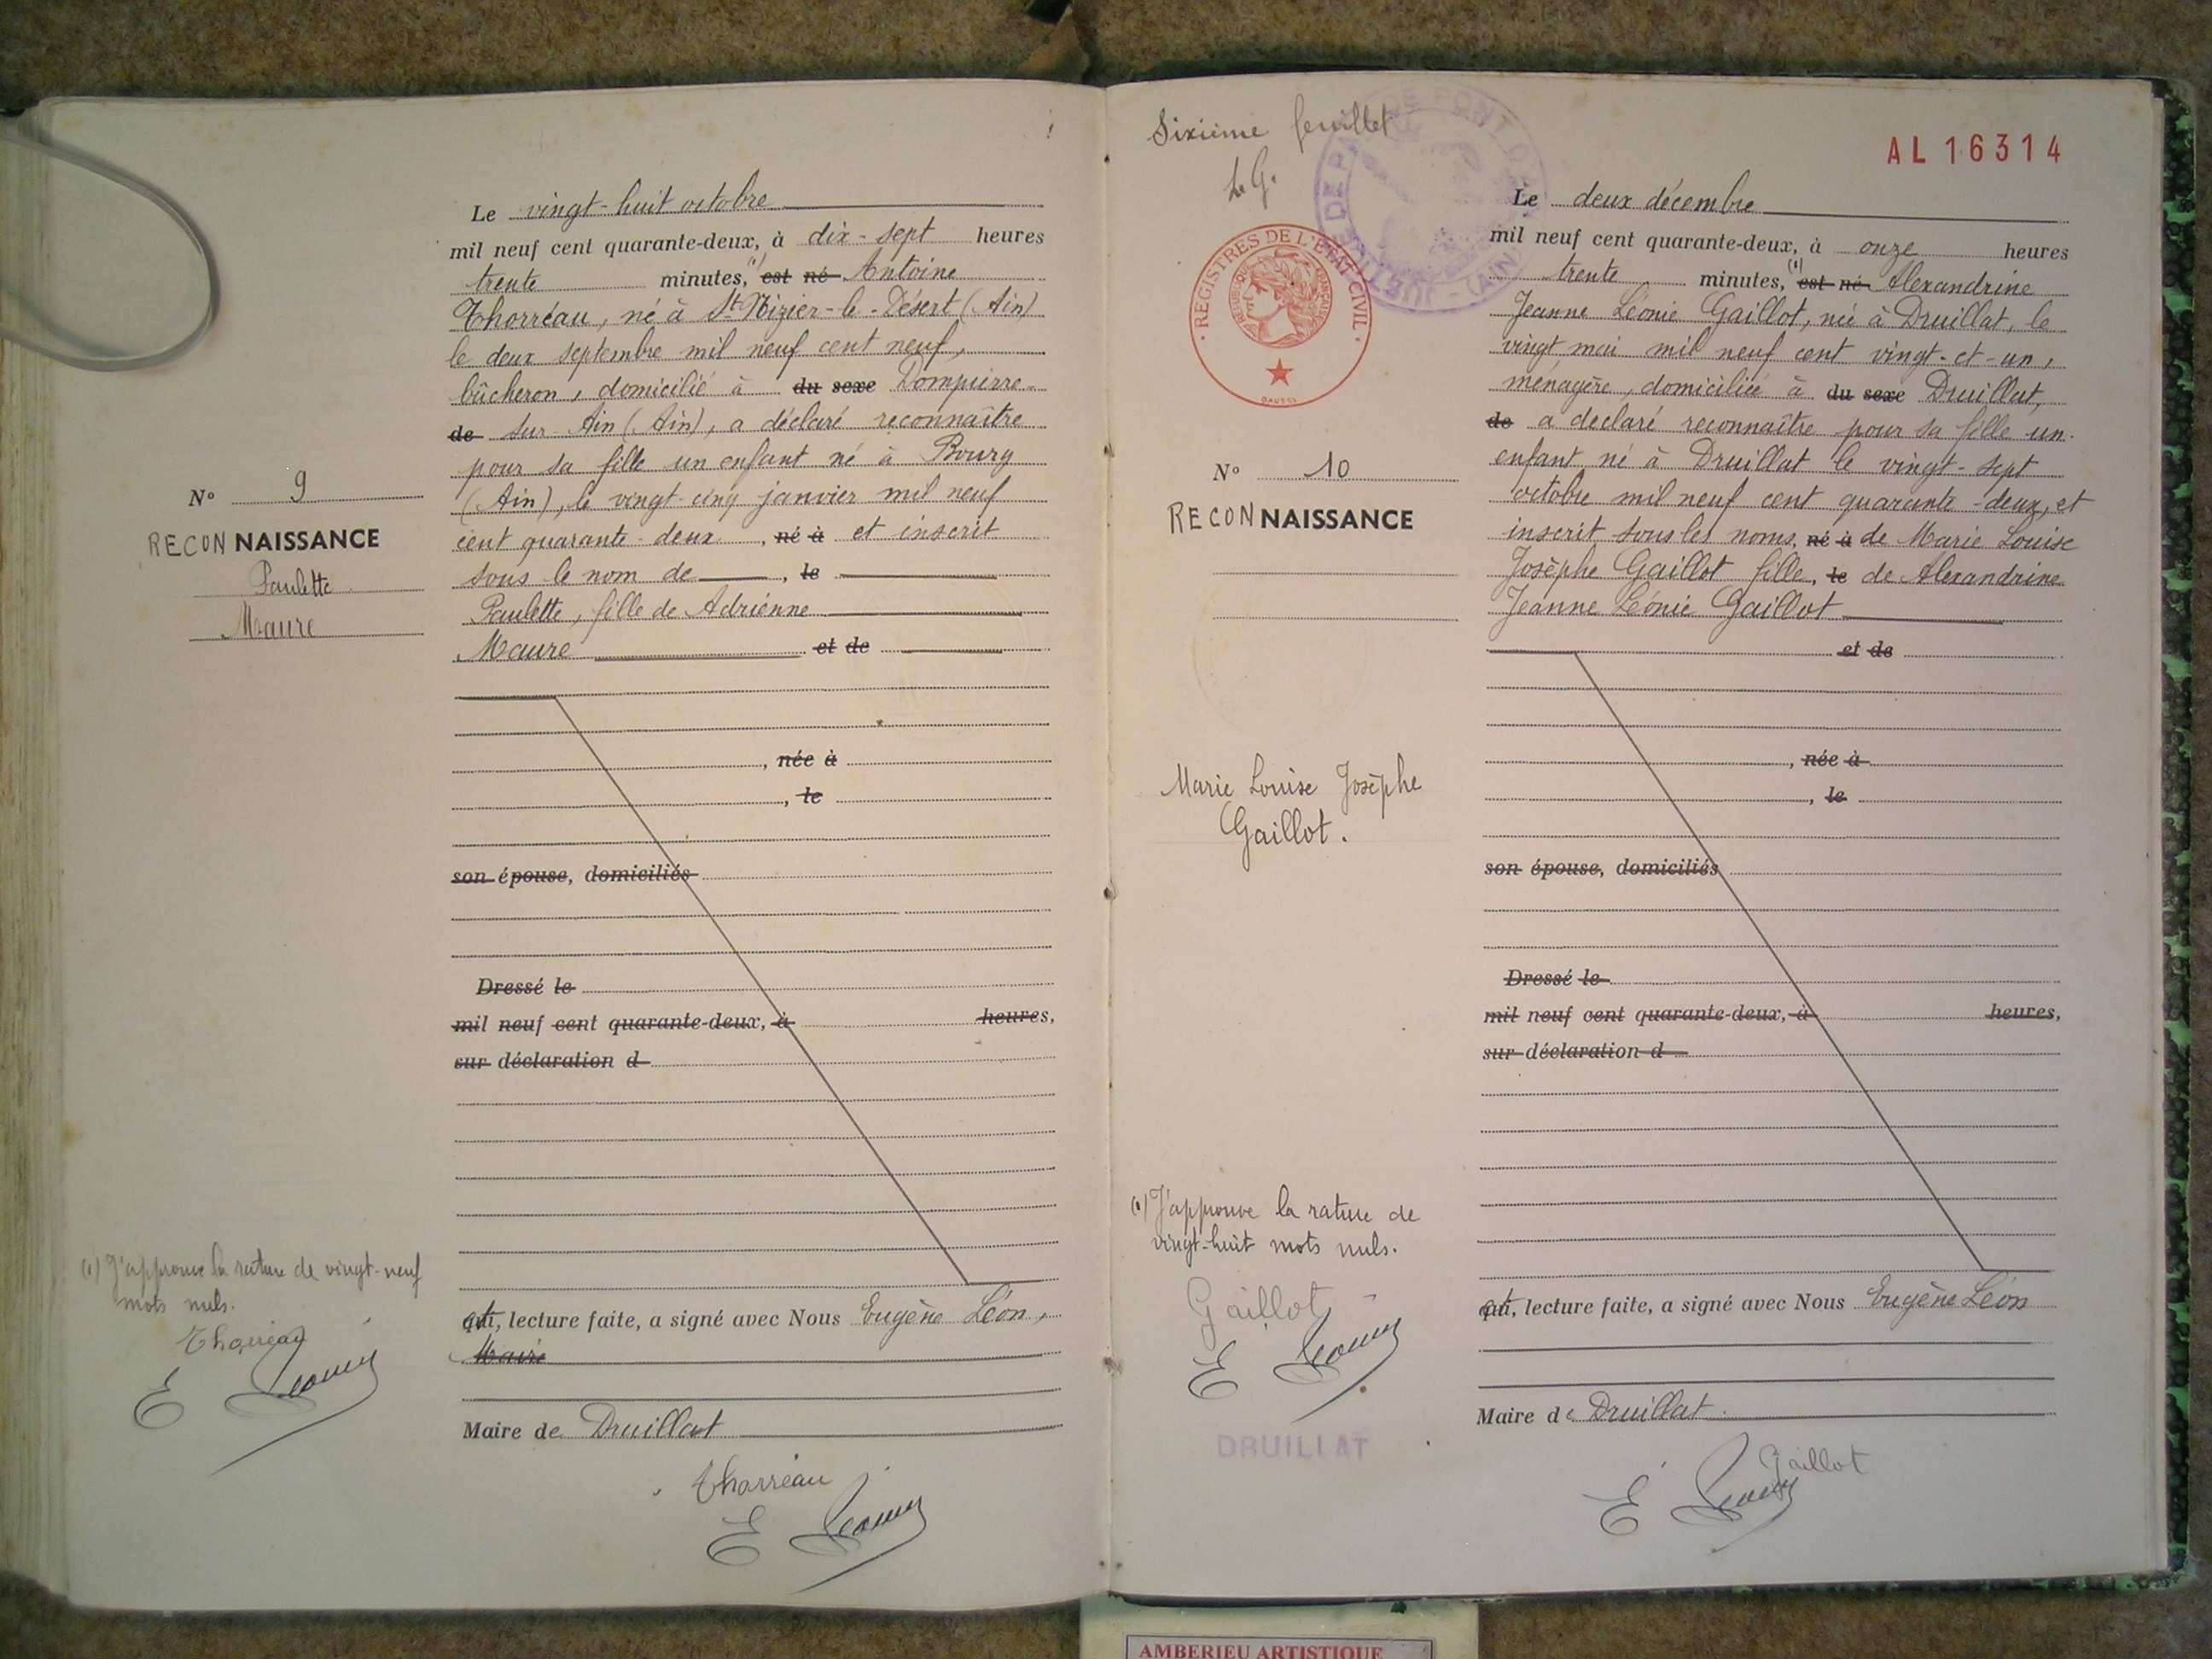 Le vingt-huit octobre
mil neuf cent quarante-deux, à dix-sept heures
trente minutes, (1) est né Antoine
Thorréau, né à St Nizier-le-Désert (Ain)
le deux septembre mil neuf cent neuf,
bûcheron, domicilié à du sexe Dompierre-
de sur Ain (Ain), a déclaré reconnaître
pour sa fille un enfant né à Bourg
(Ain), le vingt-cinq janvier mil neuf
cent quarante-deux, né à et inscrit
sous le nom de, le
Paulette, fille de Adrienne
Maure et de
, née à
, le
son épouse, domiciliés
Dressé le
mil neuf cent quarante-deux, à heures,
sur déclaration d
qui, lecture faite, a signé avec Nous Eugène Léon,
Maire
Maire de Druillat
Thorréau
E
N° 9
RECONNAISSANCE
Paulette
Maure
(1) J'approuve la rature de vingt-neuf
mots nuls.
Thorréau
E
Sixième feuillet
L.G.
AL16314
REGISTRES DE L'ETAT CIVIL
REPUBLIQUE FRANÇAISE
N° 10
RECONNAISSANCE
Marie Louise Josèphe
Gaillot.
(1) J'approuve la rature de
vingt-huit mots nuls.
Gaillot
E
DRUILLAT
Le deux décembre
mil neuf cent quarante-deux, à onze heures
trente minutes, (1) est né Alexandrine
Jeanne Léonie Gaillot, née à Druillat, le
vingt mai mil neuf cent vingt-et-un,
ménagère, domiciliée à du sexe Druillat,
de a déclaré reconnaître pour sa fille un
enfant né à Druillat le vingt-sept
octobre mil neuf cent quarante-deux, et
inscrit sous les noms, né à de Marie Louise
Josèphe Gaillot fille, le de Alexandrine
Jeanne Léonie Gaillot
et de
, née à
, le
son épouse, domiciliés
Dressé le
mil neuf cent quarante-deux, à heures,
sur déclaration d
qui, lecture faite, a signé avec Nous Eugène Léon
Maire de Druillat
Gaillot
E
AMBERIEU ARTISTIQUE